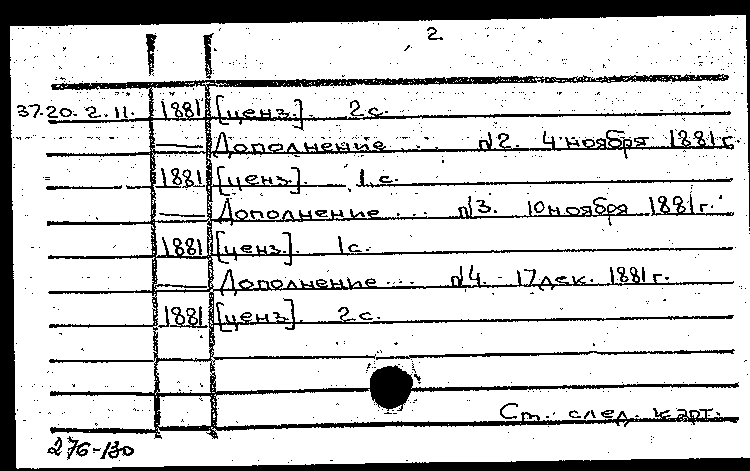 2.
37.20.2.11. 1881 [ценз]. 2 с.
— Дополнение ... №2. 4 ноября 1881 г.
1881 [ценз]. 1 с.
— Дополнение ... №3. 10 ноября 1881 г.
1881 [ценз]. 1 с.
— Дополнение ... №4. - 17 дек. 1881 г.
1881 [ценз]. 2 с.
См. след. карт.
276-130